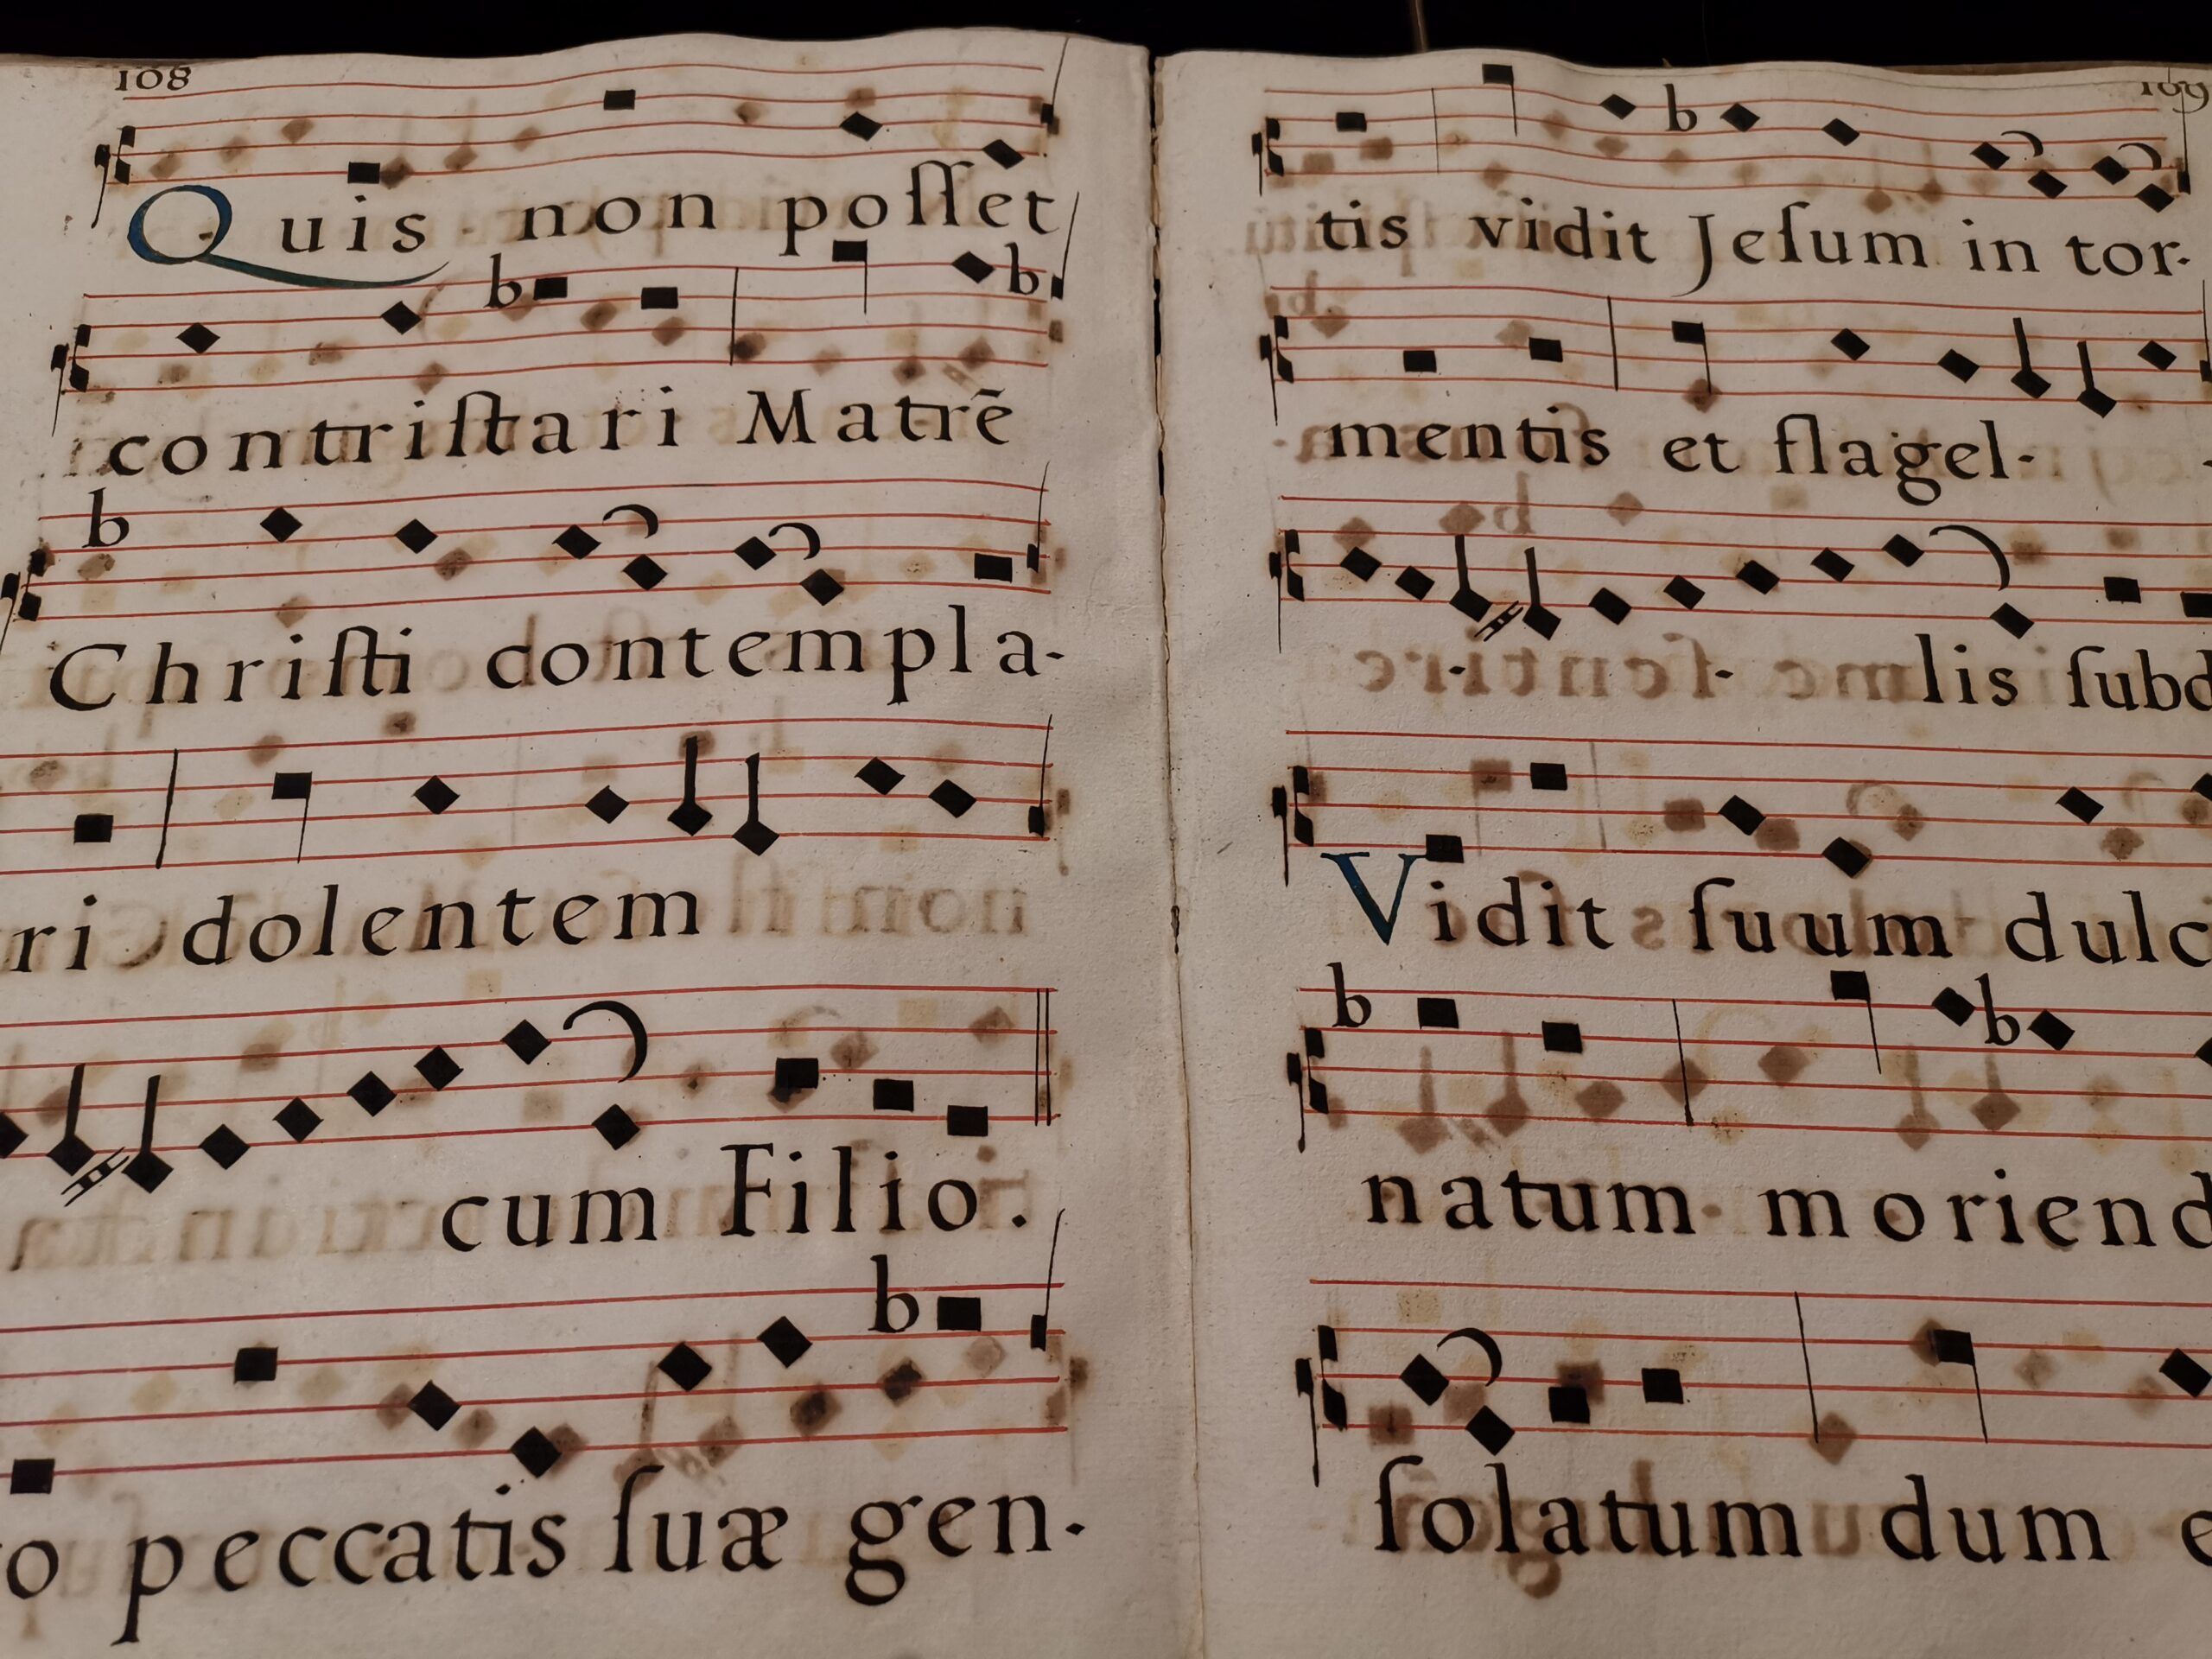 108
Quis non poſſet
contriſtari Matrē
Chriſti contempla-
ri dolentem
cum Filio.
o peccatis ſuæ gen-
109
tis vidit Jeſum in tor-
mentis et flagel-
lis ſubd
Vidit ſuum dulc
natum moriend
ſolatum dum e